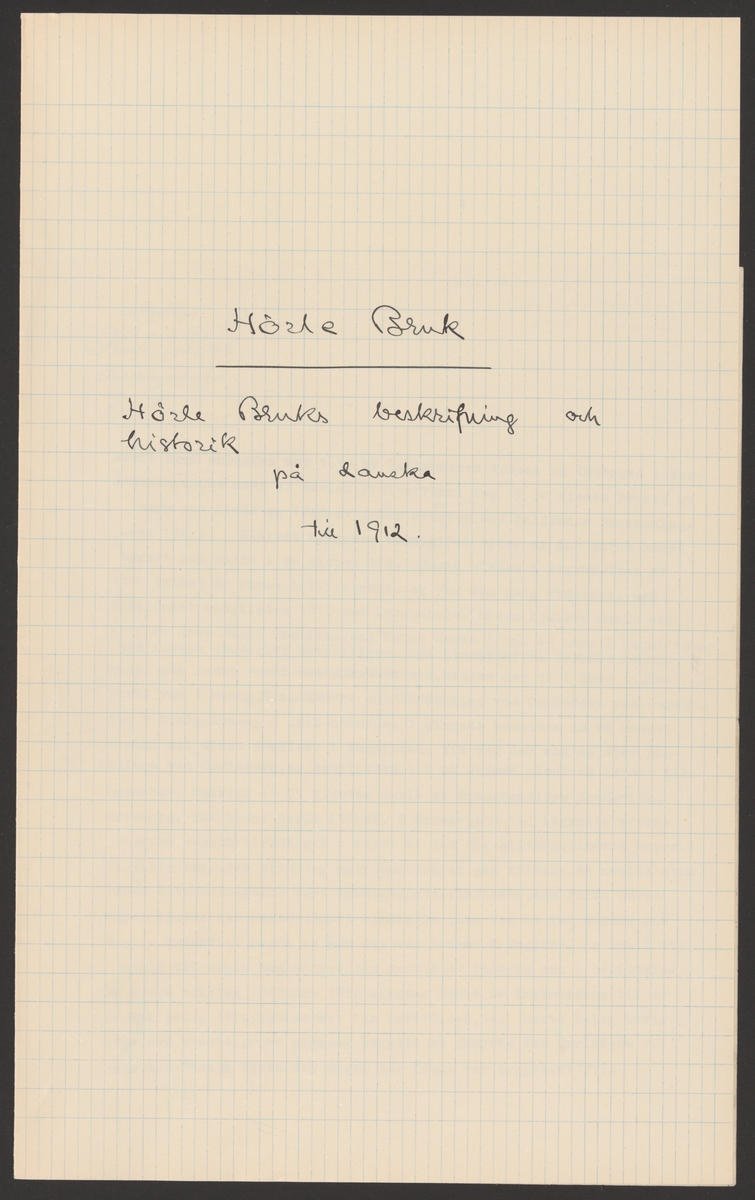 Hörle Bruk
Hörle Bruks beskrifning och
historik
på danska
till 1912.